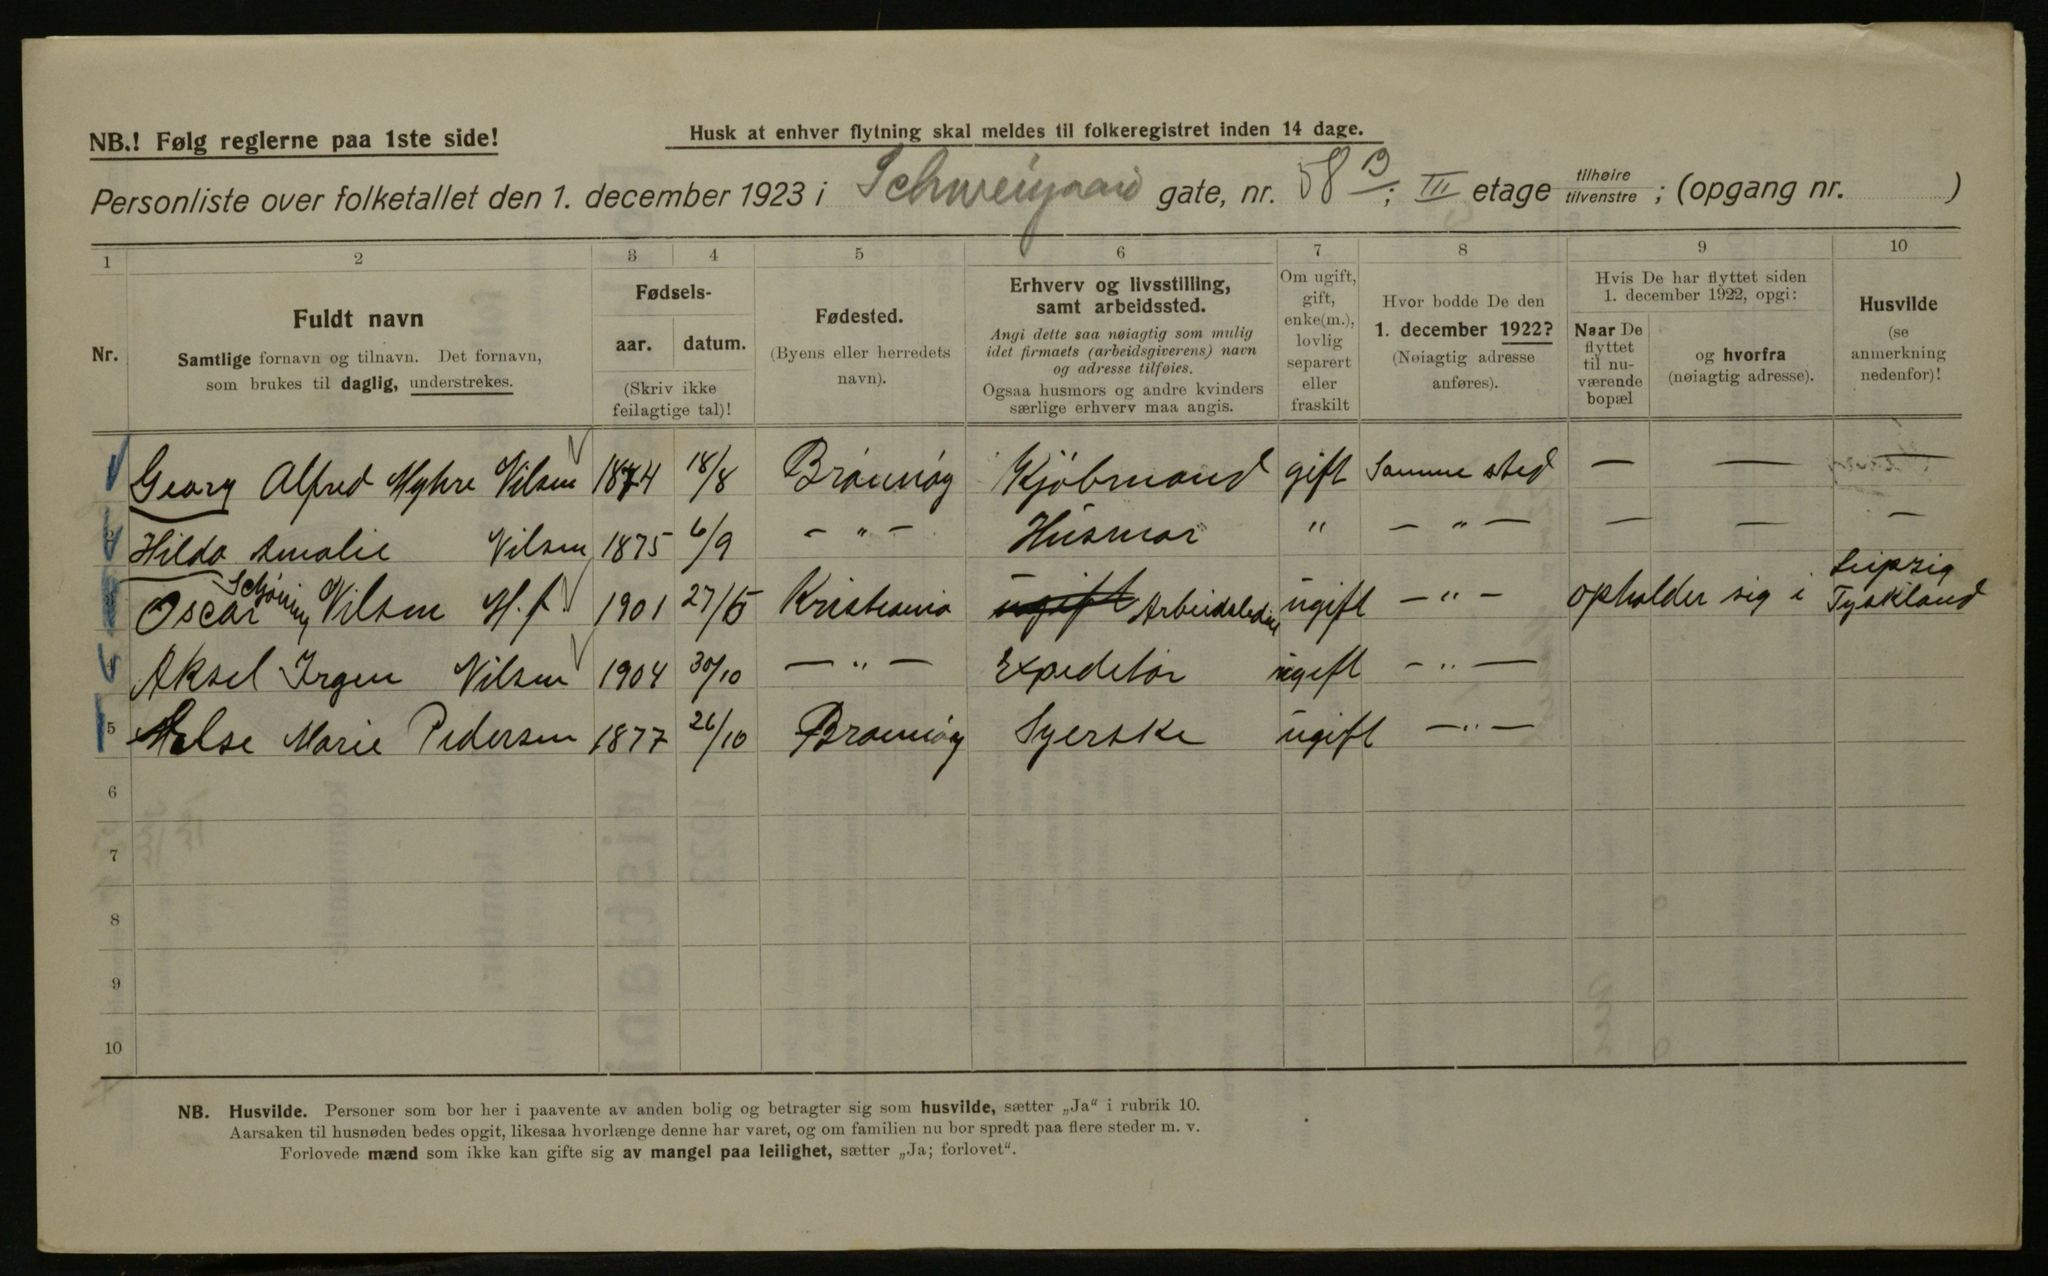 NB.! Følg reglerne paa 1ste side!
Husk at enhver flytning skal meldes til folkeregistret inden 14 dage.
Personliste over folketallet den 1. december 1923 i Schweigaard gate, nr. 58 B; III etage tilhøire tilvenstre ; (opgang nr. )
1 2 3 4 5 6 7 8 9 10
Nr.
Fuldt navn
Samtlige fornavn og tilnavn. Det fornavn,
som brukes til daglig, understrekes.
Fødsels-
aar. datum.
(Skriv ikke
feilagtige tal)!
Fødested.
(Byens eller herredets
navn).
Erhverv og livsstilling,
samt arbeidssted.
Angi dette saa nøiagtig som mulig
idet firmaets (arbeidsgiverens) navn
og adresse tilføies.
Ogsaa husmors og andre kvinders
særlige erhverv maa angis.
Om ugift,
gift,
enke(m.),
lovlig
separert
eller
fraskilt
Hvor bodde De den
1. december 1922?
(Nøiagtig adresse
anføres).
Hvis De har flyttet siden
1. december 1922, opgi:
Naar De
flyttet
til nu-
værende
bopæl
og hvorfra
(nøiagtig adresse).
Husvilde
(se
anmerkning
nedenfor)!
Georg Alfred Myhre Nilsen 1874 18/8 Brønnøy Kjøbmand gift Samme sted — — —
Hilda Amalie Nilsen 1875 6/9 — " — Husmor " — " — — — —
Oscar Schjøning Nilsen H.f 1901 27/5 Kristiania ugift Arbeidsleder ugift — " — opholder sig i Leipzig Tyskland
Aksel Jrgen Nilsen 1904 30/10 — " — Expeditør ugift — " —
5 Else Marie Pedersen 1877 26/10 Brønnøy Syerske ugift — " —
6
7
8
9
10
NB. Husvilde. Personer som bor her i paavente av anden bolig og betragter sig som husvilde, sætter „Ja“ i rubrik 10.
Aarsaken til husnøden bedes opgit, likesaa hvorlænge denne har varet, og om familien nu bor spredt paa flere steder m. v.
Forlovede mænd som ikke kan gifte sig av mangel paa leilighet, sætter „Ja; forlovet“.